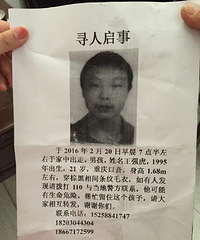 寻人启事
于 2016 年 2 月 20 日早晨 7 点半左
右于家中出走，男孩，姓名王强虎，1995
年出生，21 岁，重庆口音，身高 1.68m
左右，穿棕黑相间条纹毛衣，如有人发
现请拨打 110 与当地警方联系，他可能
有生命危险，帮忙留住这个孩子，请大
家相互转发，谢谢你们。
联系电话：15258841747
18203044304
18667172599